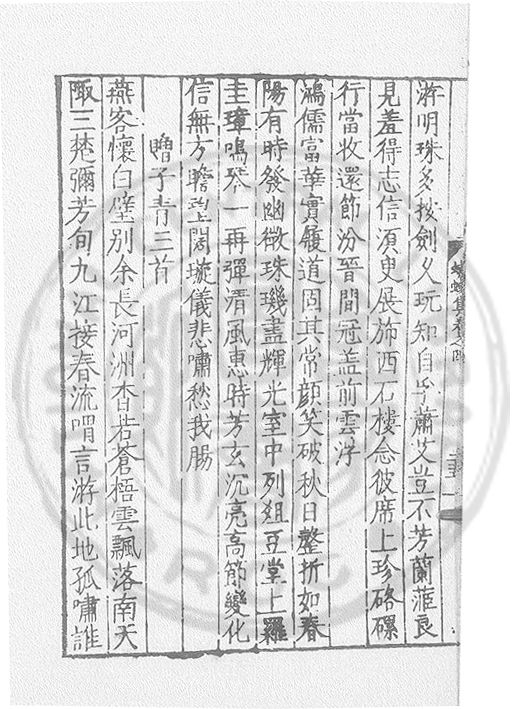 游明珠多按劍久玩知自乎蕭艾豈不芳蘭蓀良
見羞得志信須臾展旆西石樓念彼席上珍硌磥
行當收還節汾晉間冠盖前雲浮
鴻儒富華實履道固其常顏笑破秋日整折如春
陽有時發幽微珠璣盡輝光室中列俎豆堂上羅
圭璋鳴琴一再彈清風惠時芳玄沉亮高節變化
信無方瞻望闊璇儀悲嘯愁我腸
贈子青三首
燕客懷白璧別余長河洲杳若蒼梧雲飄落南天
陬三楚彌芳甸九江接春流喟言游此地孤嘯誰
集卷之四